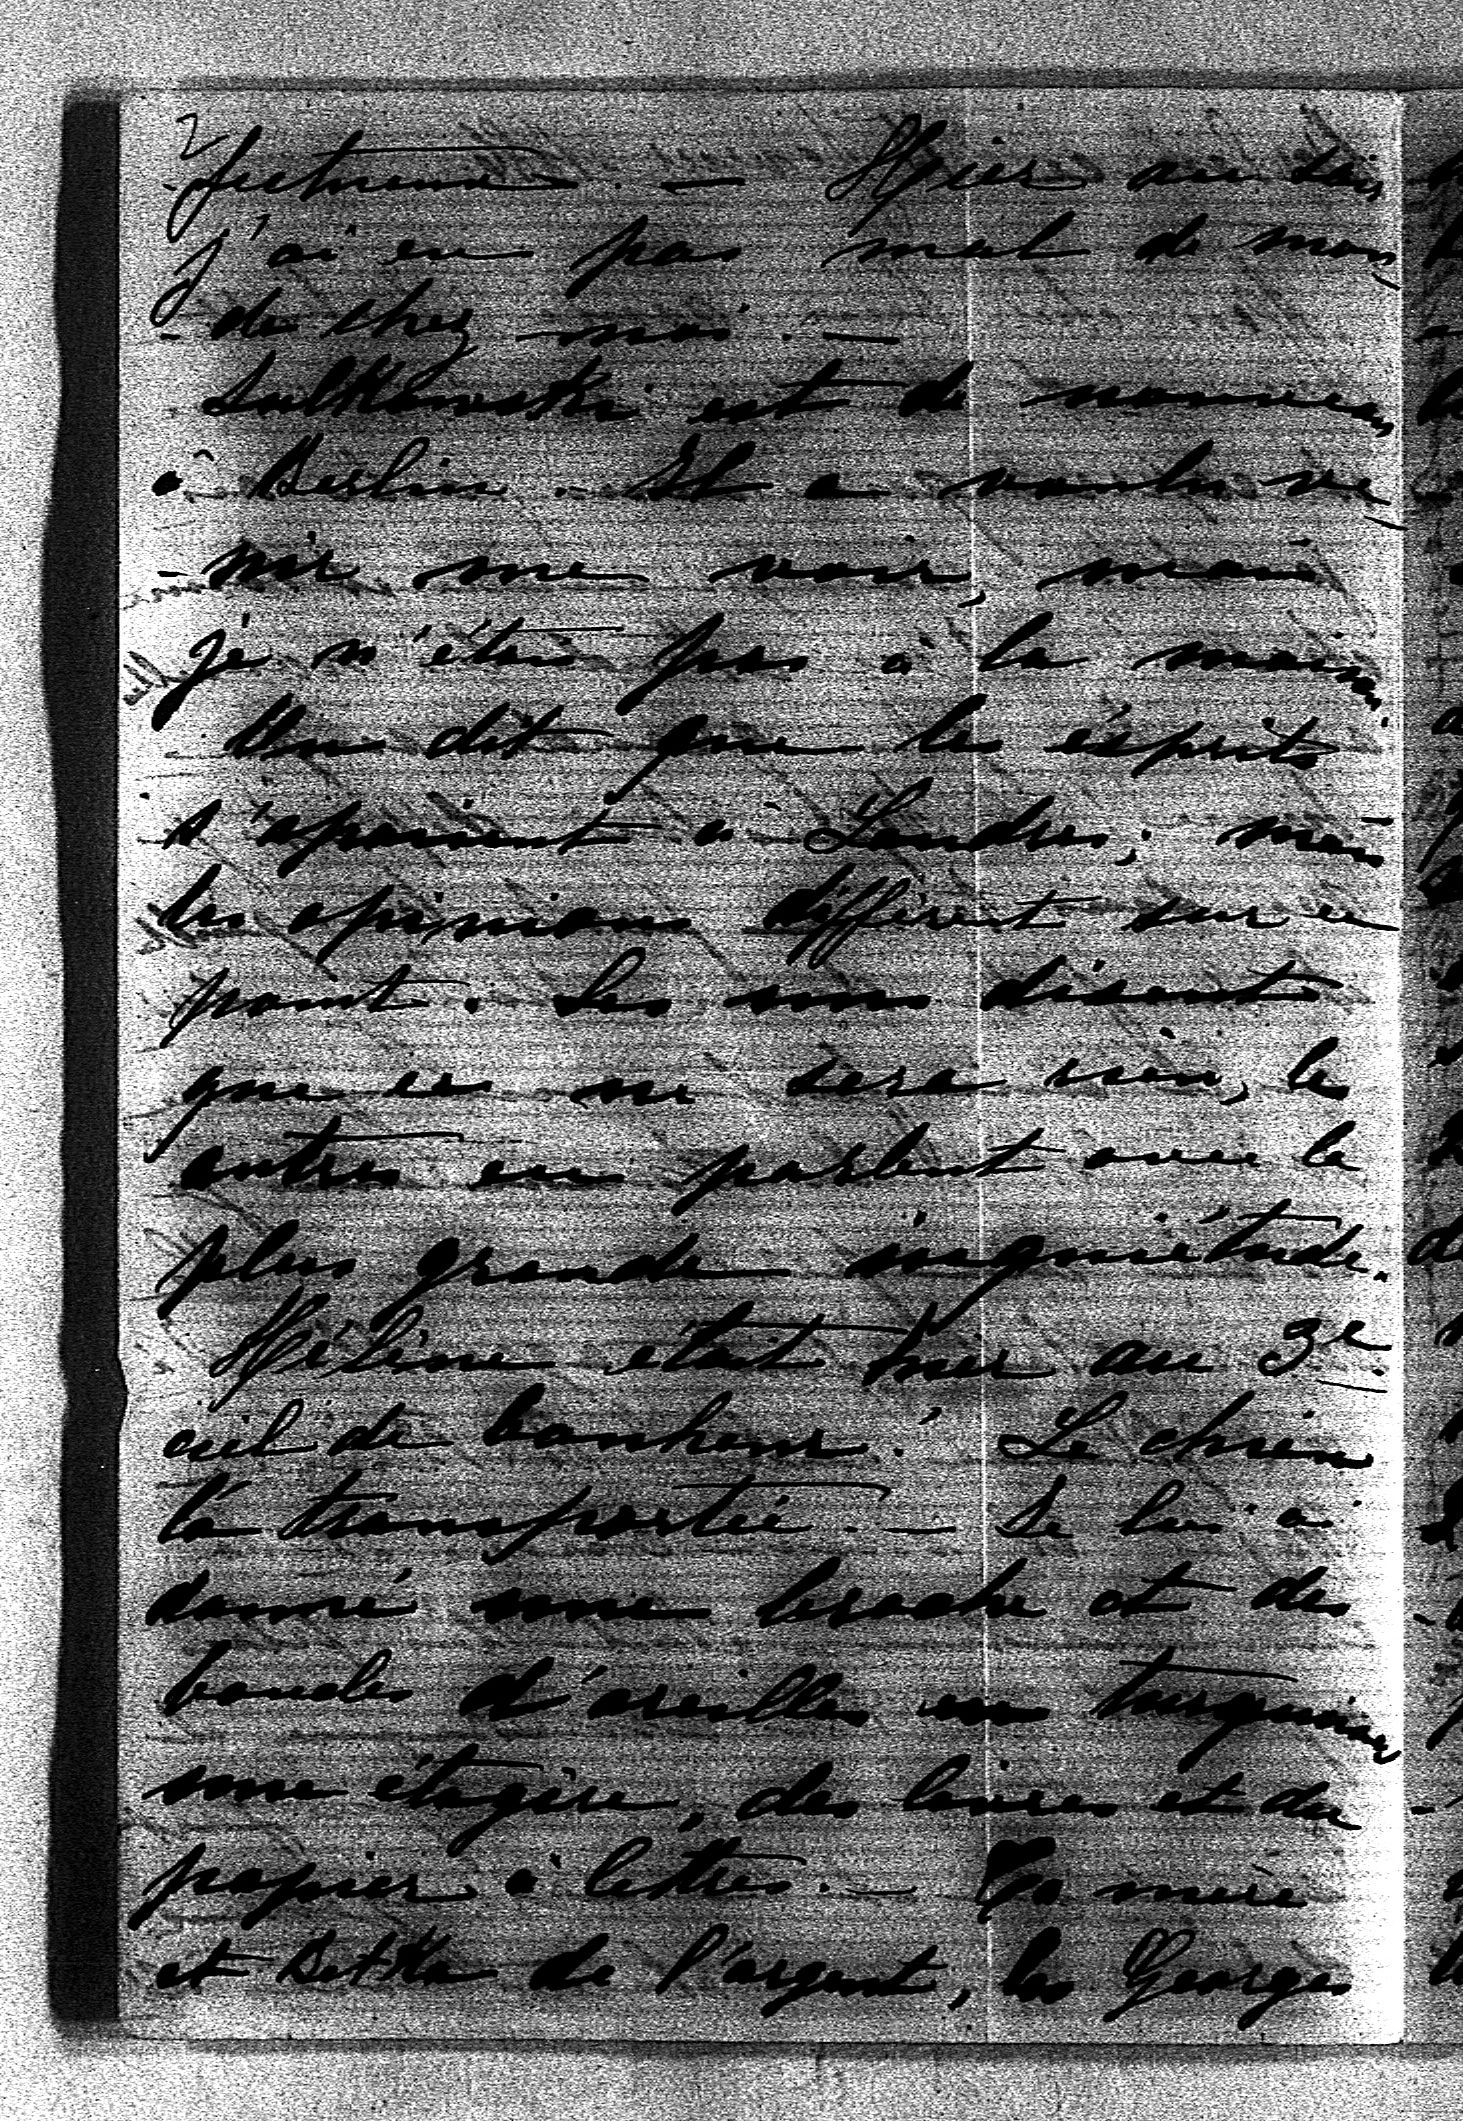 2
-fectueux. — Hier au soir
j'ai eu pas mal de mon-
-de chez moi. —
Sulkowski est de nouveau
à Berlin. Il a voulu ve-
-nir me voir, mais
je n'étais pas à la maison.
On dit que les esprits
s'apaisent à Londres; mais
les opinions diffèrent sur ce
point. Les uns disent
que ce ne sera rien, les
autres en parlent avec la
plus grande inquiétude.
Hélène était hier au 3e
ciel de bonheur! Le chien
l'a transportée. — Je lui ai
donné une broche et des
boucles d'oreilles en turquoises,
une étagère, des livres et du
papier à lettres. — Ta mère
et Betka de l'argent, les Georges